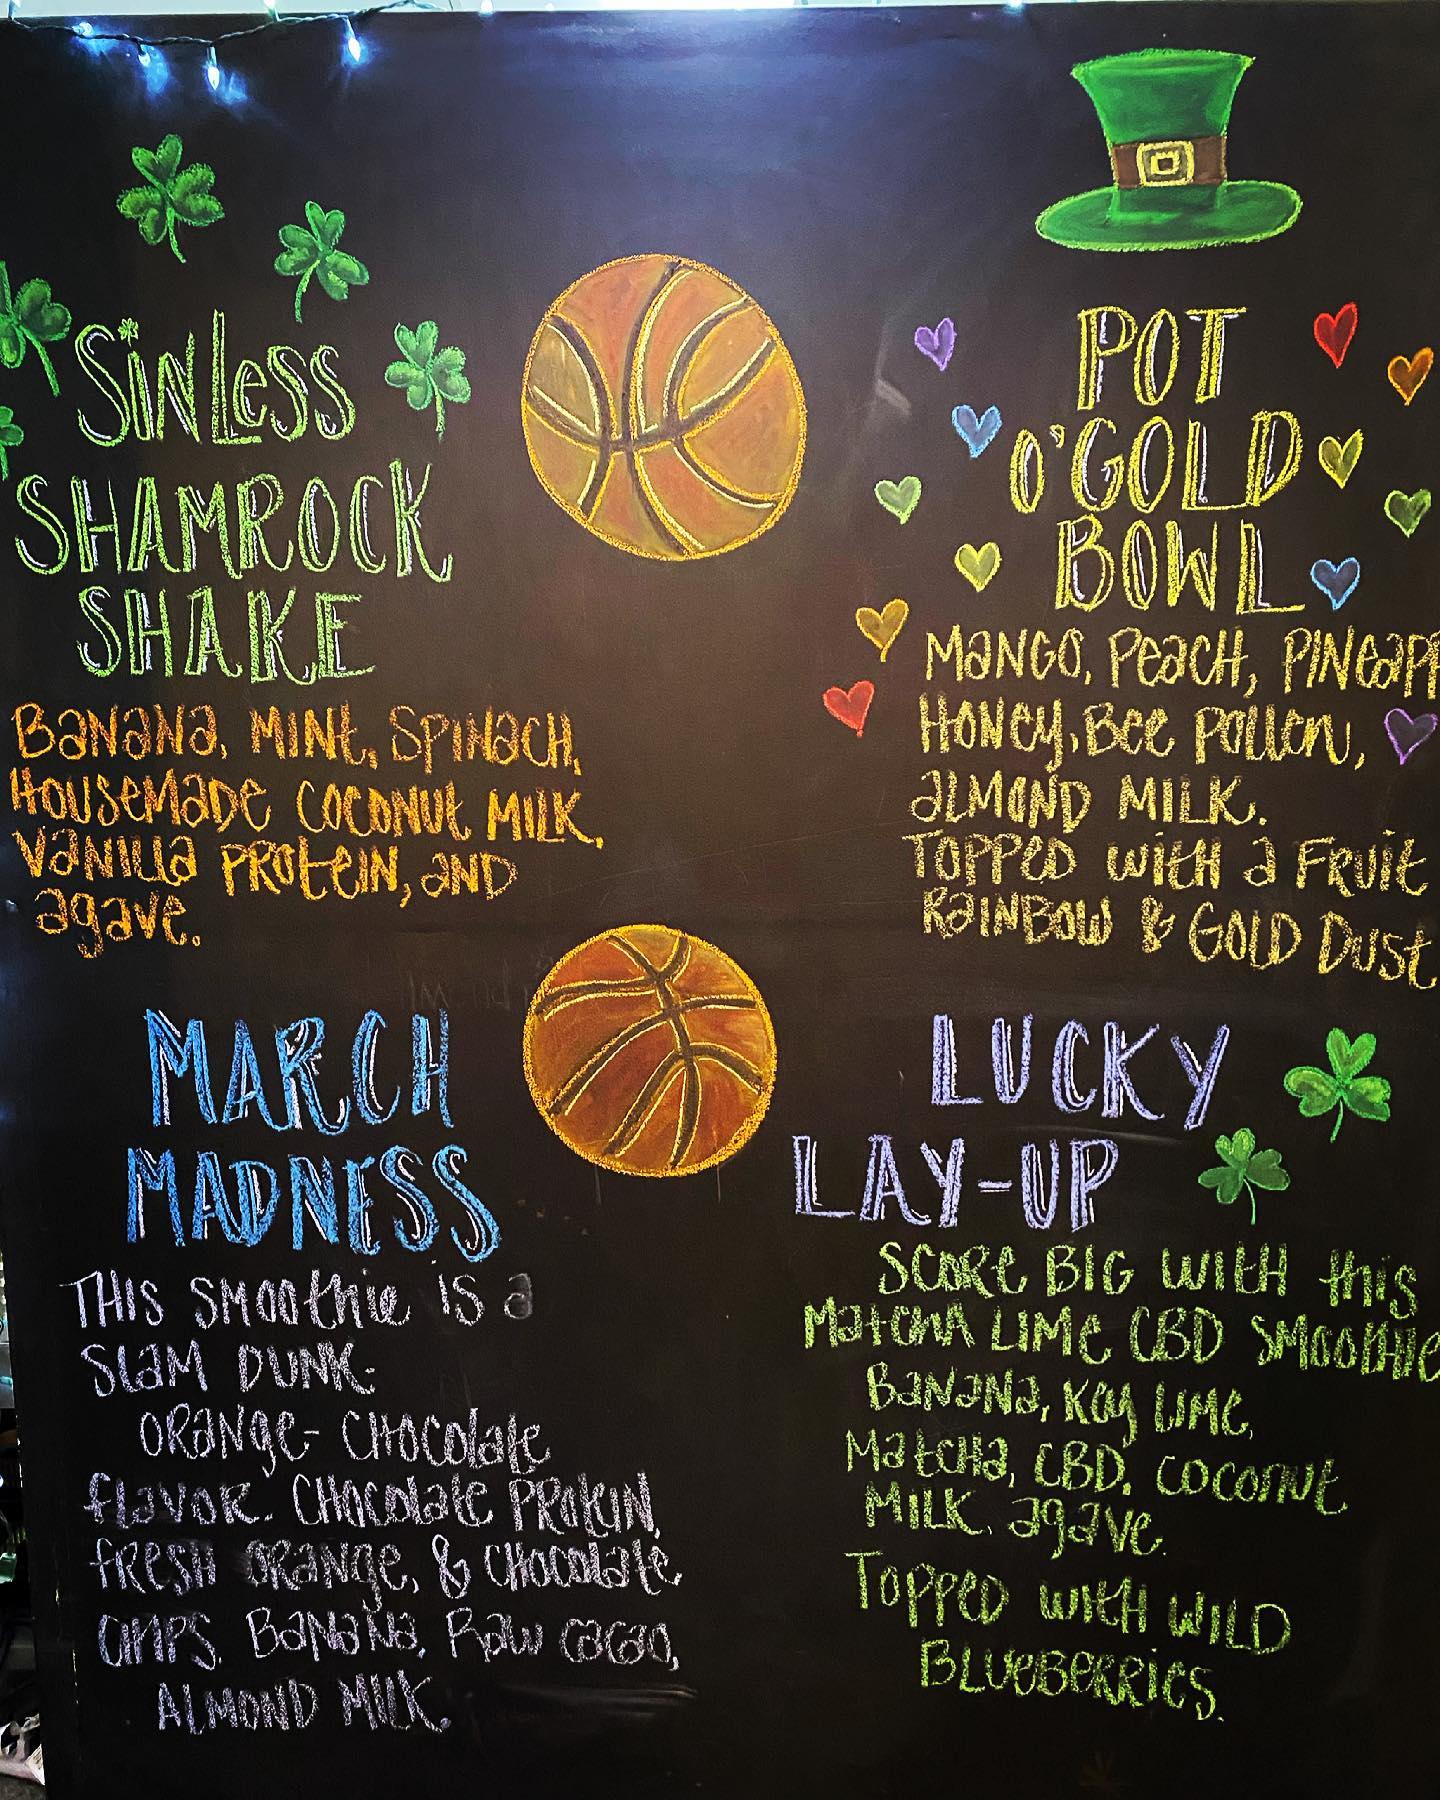 Sinless
SHAMROCK
SHAKE
Banana, Mint, Spinach,
Housemade Coconut Milk,
Vanilla Protein, and
agave.
POT
O'GOLD
BOWL
Mango, Peach, Pineapp
Honey, Bee Pollen,
almond Milk.
Topped with a Fruit
Rainbow & Gold Dust
MARCH
MADNESS
This smoothie is a
slam dunk-
orange-chocolate
flavor. Chocolate Protein,
fresh orange, & chocolate
chips. Banana, Raw cacao,
Almond Milk.
LUCKY
LAY-UP
Score Big with this
Matcha Lime CBD Smoothie
Banana, Key Lime,
Matcha, CBD, Coconut
Milk, agave.
Topped with Wild
Blueberries.